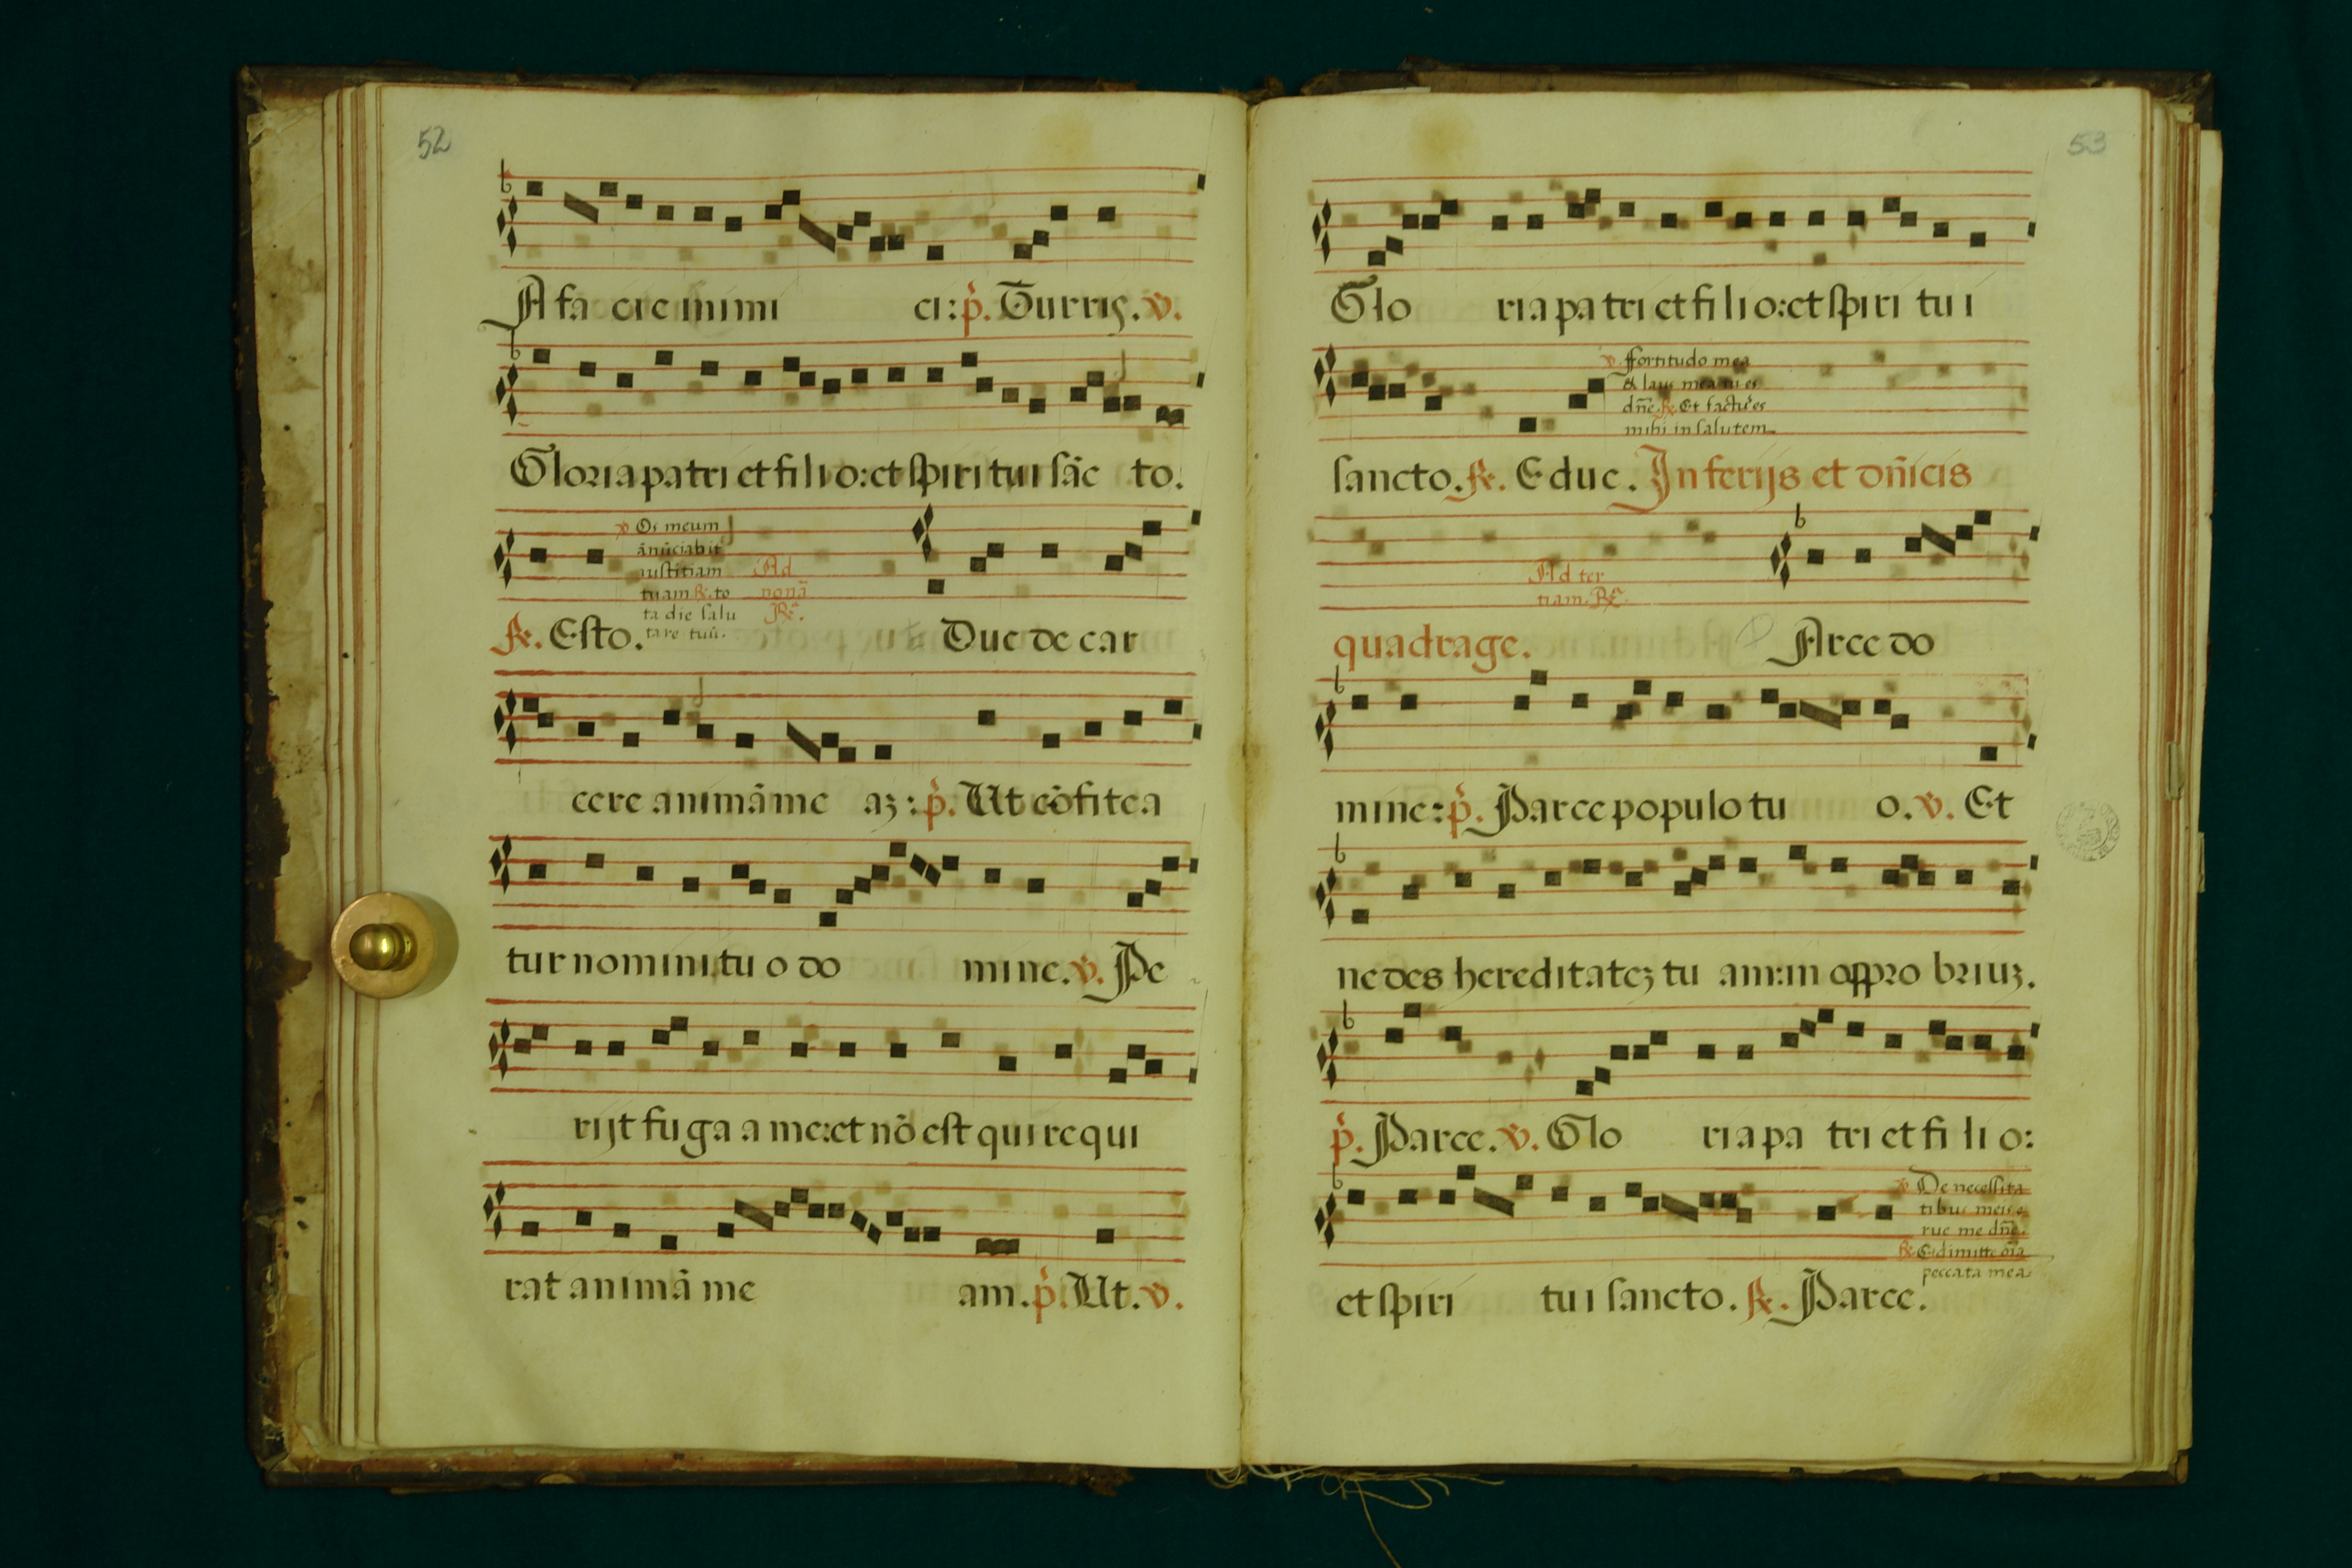 52
A fa cie inimi ci: p̃. Turris. v.
Gloria patri et filio: et spiritui sãc to.
v. Os meum
ãnũciabit
iustitiam
tuam ꝶ. to
ta die salu
tare tuũ.
Ad
nonã
ꝶ.
ꝶ. Esto. Duc de car
cere animã me aʒ: p̃. Ut cõfitea
tur nomini tuo do mine. v. Pe
rijt fuga a me: et nõ est qui requi
rat animã me am. p̃. Ut. v.
53
Glo ria patri et filio: et spiri tui
v. Fortitudo mea
& laus mea tu es
dñe. ꝶ. Et factus es
mihi in salutem
sancto. ꝶ. Educ. In ferijs et dñicis
Ad ter
tiam. ꝶ.
quadrage. Arce do
mine: p̃. Parce populo tu o. v. Et
ne des hereditateʒ tu am: in oppro briuʒ.
p̃. Parce. v. Glo ria pa tri et fi li o:
v. De necessita
tibus meis e
rue me dñe.
ꝶ. Et dimitte oĩa
peccata mea
et spiri tui sancto. ꝶ. Parce.